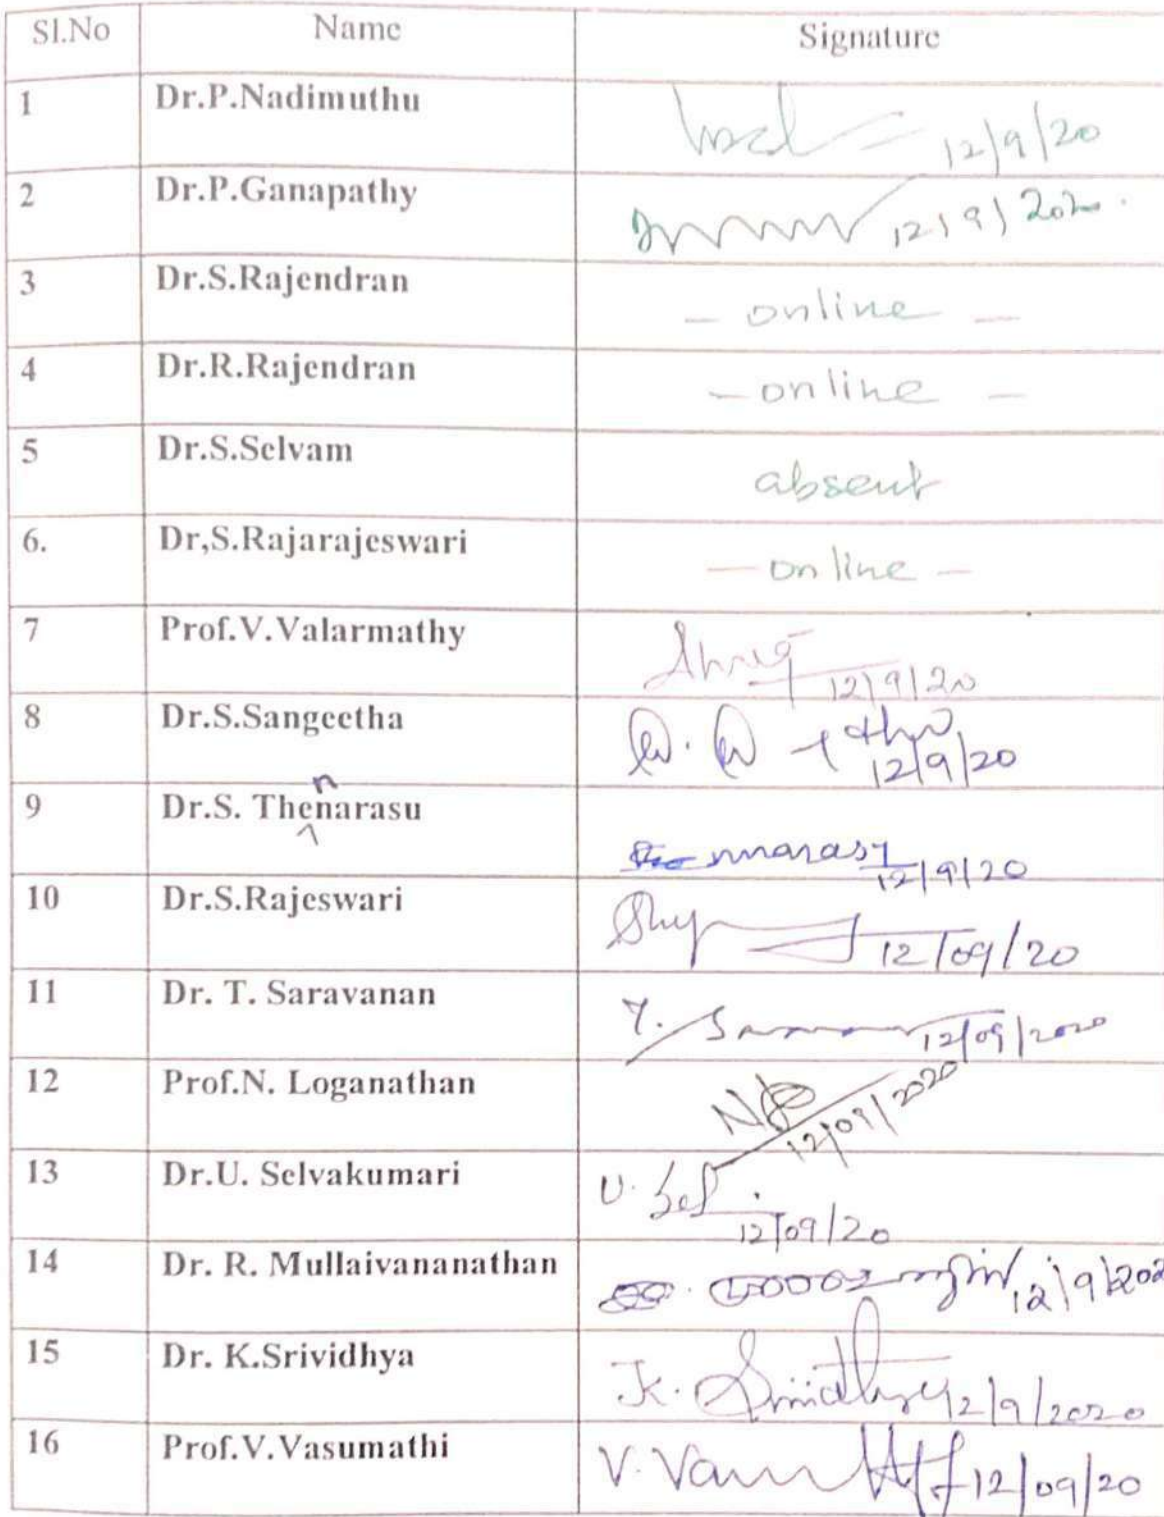 Sl.No Name Signature
1 Dr.P.Nadimuthu 12/9/20
2 Dr.P.Ganapathy 12/9/2020.
3 Dr.S.Rajendran - online -
4 Dr.R.Rajendran - online -
5 Dr.S.Selvam absent
6. Dr,S.Rajarajeswari - online -
7 Prof.V.Valarmathy 12/9/20
8 Dr.S.Sangeetha 12/9/20
9 Dr.S. Thennarasu 12/9/20
10 Dr.S.Rajeswari 12/09/20
11 Dr. T. Saravanan 12/09/2020
12 Prof.N. Loganathan 12/09/2020
13 Dr.U. Selvakumari U. Sel 12/09/20
14 Dr. R. Mullaivananathan 12/9/202
15 Dr. K.Srividhya K. Srividhya 12/9/2020
16 Prof.V.Vasumathi 12/09/20